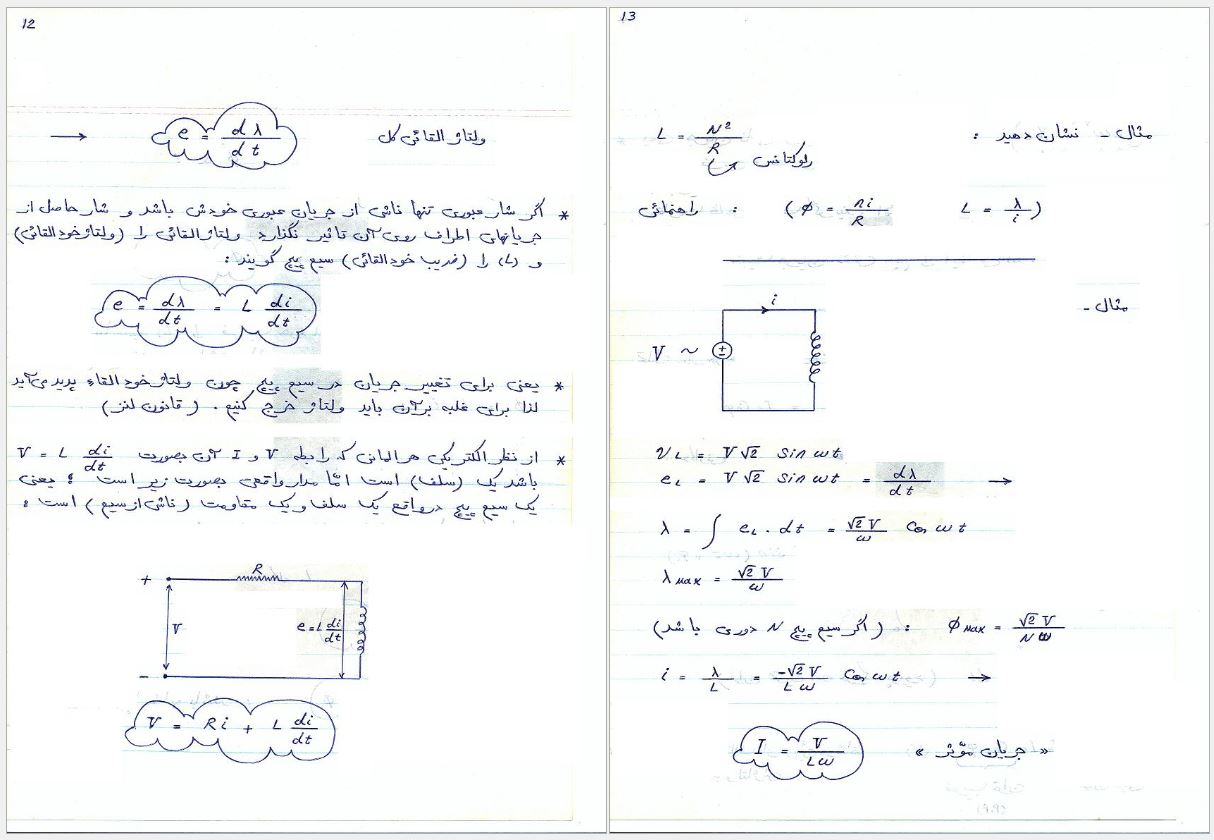 12
ولتاژ القائی کل e = dλ/dt →
* اگر شار عبوری تنها ناشی از جریان عبوری خودش باشد و شار حاصل از
جریانهای اطراف روی آن تاثیر نگذارد ولتاژ القائی را (ولتاژ خود القائی)
و (L) را (ضریب خود القائی) سیم پیچ گویند :
e = dλ/dt = L di/dt
* یعنی برای تغییر جریان در سیم پیچ چون ولتاژ خود القاء پدید می‌آید
لذا برای غلبه بر آن باید ولتاژ خرج کنیم . ( قانون لنز )
* از نظر الکتریکی هر المانی که رابطه V و I آن بصورت V = L di/dt
باشد یک (سلف) است امّا مدار واقعی بصورت زیر است ؛ یعنی
یک سیم پیچ در واقع یک سلف و یک مقاومت ( ناشی از سیم ) است :
+ R
V e = L di/dt
-
V = Ri + L di/dt
13
مثال - نشان دهید : L = N²/R
رلوکتانس
راهنمائی : (φ = ni/R L = λ/i)
مثال -
i
V ~ ±
vL = V√2 Sin ωt
eL = V√2 Sin ωt = dλ/dt →
λ = ∫ eL . dt = √2 V/ω Cos ωt
λmax = √2 V/ω
(اگر سیم پیچ N دوری باشد) : φmax = √2 V/Nω
i = λ/L = -√2 V/Lω Cos ωt →
I = V/Lω « جریان مؤثر »